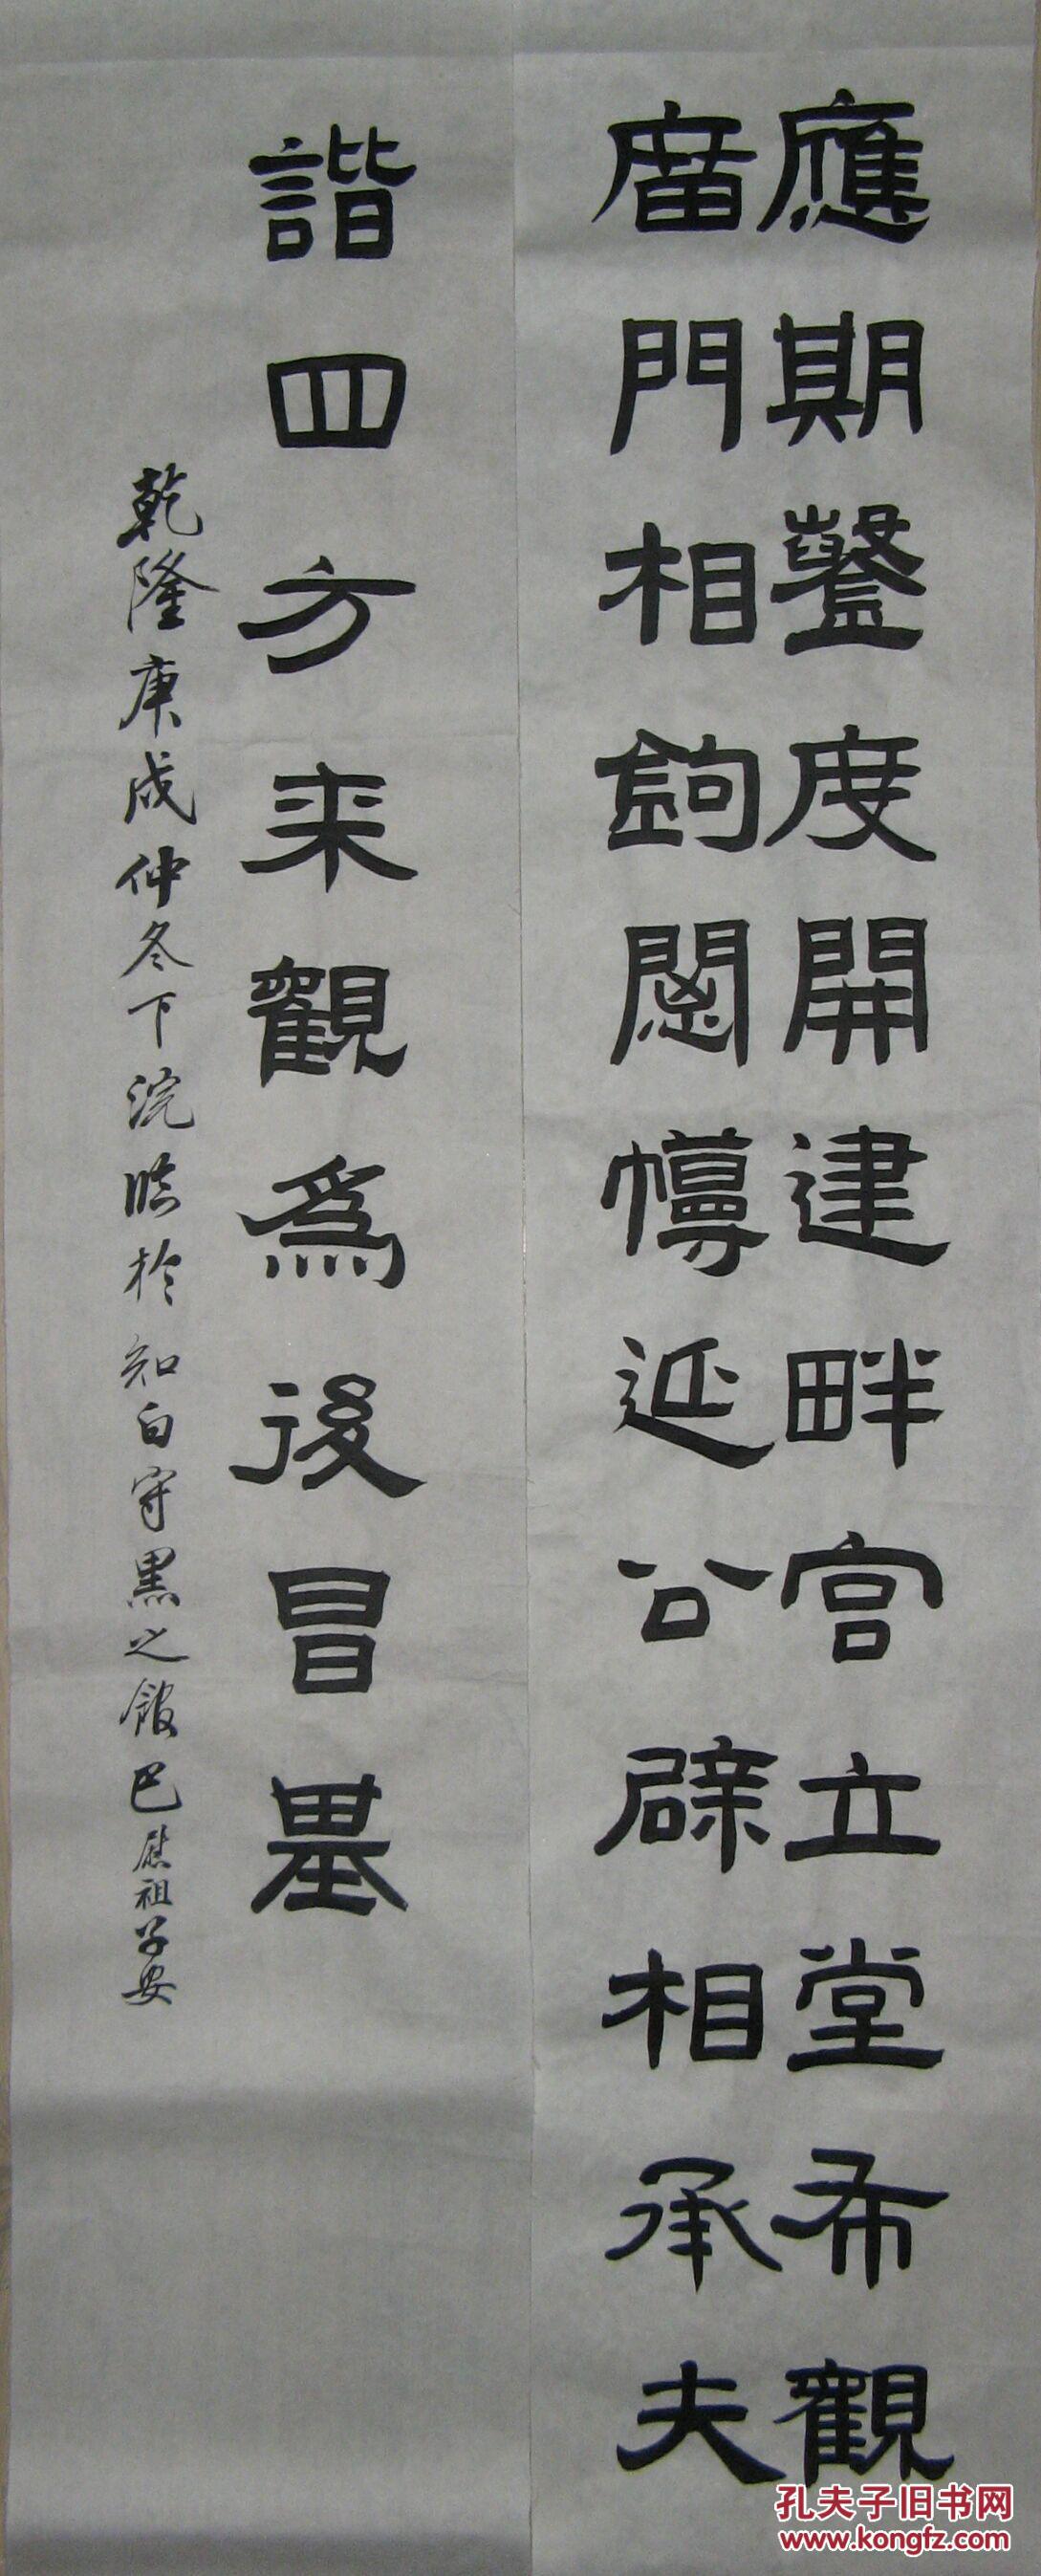 應期鑿度開建畔宮立堂布觀
廧門相鉤閿幬延公辟相承夫
諧四方来觀為後冒基
乾隆庚戌仲冬下浣臨於知白守黑之館巴慰祖子安
孔夫子旧书网
www.kongfz.com